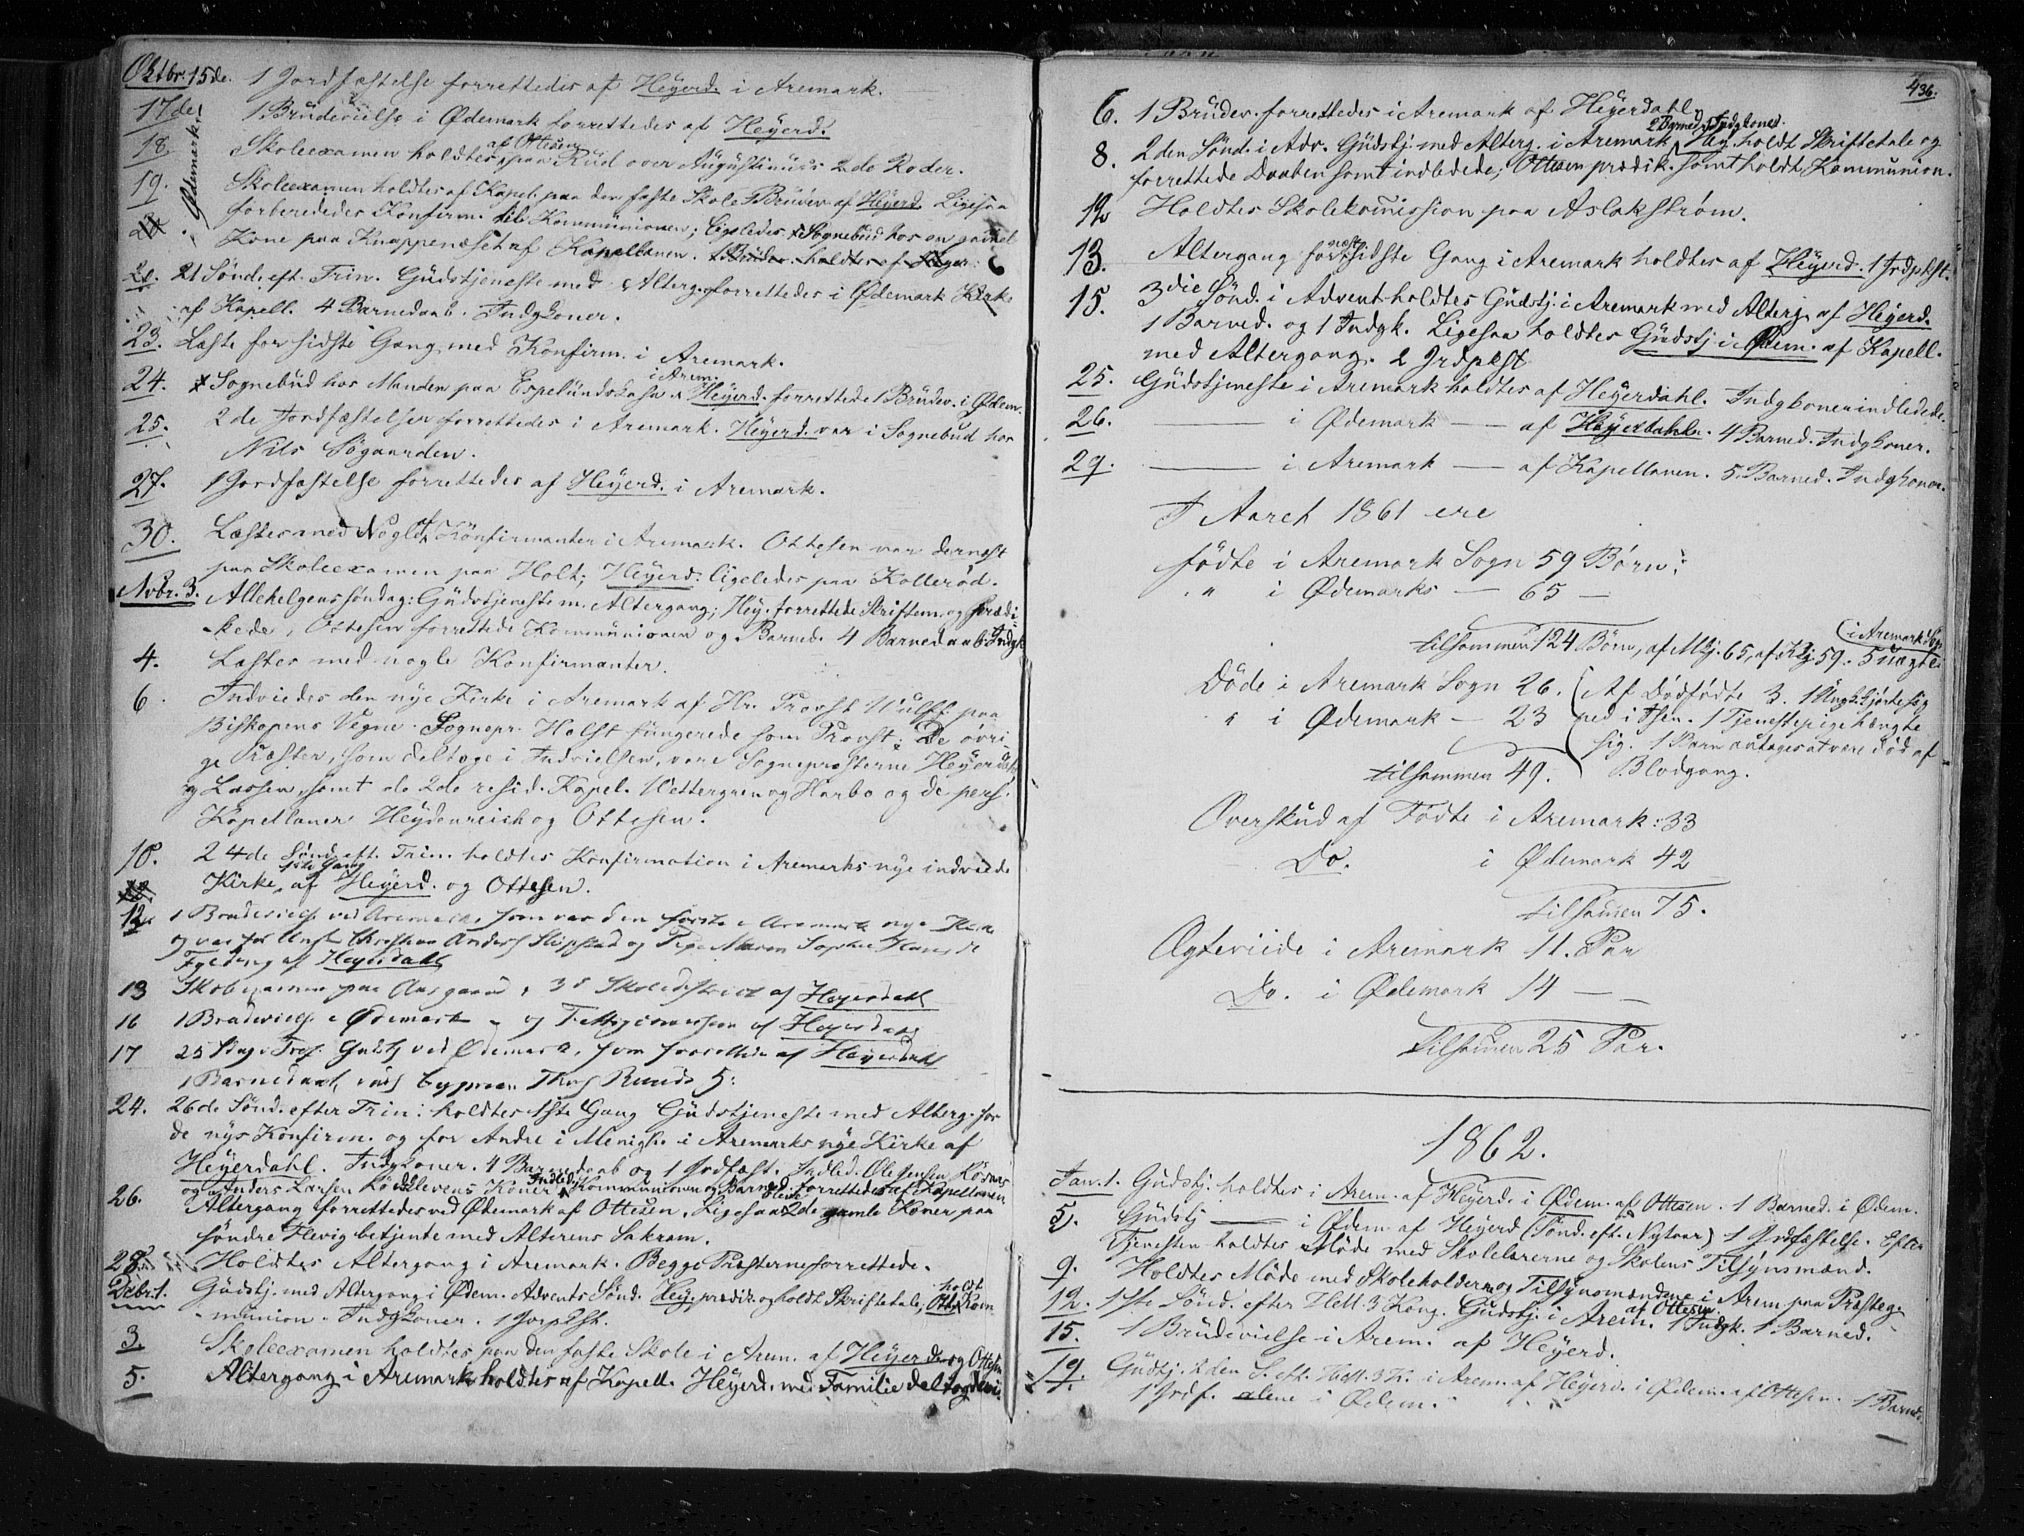 Oktbr. 15de. 1 Jordfæstelse forrettedes af Heyerd. i Aremark.
17de 1 Brudevielse i Ødemark forrettedes af Heyerd.
Ødemark.
18. Skoleexamen holdtes af Ottesen paa Rud over Augustinius 2de Roder.
19. Skoleexamen holdtes af Kapel. paa den faste Skole 1 Brudev. af Heyerd. Ligesaa
forberededes Konfirm. til Kommunionen; ligeledes Sognebud hos en gammel
Kone paa Knappenæset af Kapellanen. 1 Brudev. holdtes af Heyer:
20. 21 Sønd. eft. Trin. Gudstjeneste med Alterg. forrettedes i Ødemark Kirke
af Kapell. 4 Barnedaab. Indgkoner.
23. Læste for sidste Gang med Konfirm. i Aremark.
24. Sognebud hos Manden paa Espelund i Arem. Heyerd. forrettede 1 Brudev. i Ødem.
25. 2de Jordfæstelser forrettedes i Aremark. Heyerd. var i Sognebud hos
Nils Søgaarden.
27. 1 Jordfæstelse forrettedes af Heyerd. i Aremark.
30. Læstes med Nogle af Konfirmanter i Aremark. Ottesen var dernæst
paa Skoleexamen paa Holt; Heyerd. ligeledes paa Kollerød.
Novbr. 3. Allehelgenssøndag: Gudstjeneste m. Altergang; Hey. forrettede Skriftem. og prædi-
kede, Ottesen forrettede Kommunionen og Barned. 4 Barnedaab. Indgk
4. Læstes med nogle Konfirmanter.
6. Indviedes den nye Kirke i Aremark af Hr. Provst Wulff paa
Biskopens Vegne. Sognepr. Holst fungerede som Provst; De øvri-
ge Præster, som deltoge i Indvielsen, vare Sognepræsterne Heyerdahl
og Lassen, samt de 2de resid. Kapel. Wettergren og Harbo og de pers.
Kapellaner Heydenreich og Ottesen.
10. 24de Sønd. eft. Trin. holdtes Konfirmation 1ste Gang i Aremarks nye indviede
Kirke, af Heyerd. og Ottesen.
12 1 Brudevielse ved Aremark, som var den første i Aremark nye Kirke
og var for Unk. Christian Anders. Skipstad og Pige Maren Sophie Hansd.
af Heyerdahl
13 Skolexamen paa Aasgaard, 3d Skoledistrict af Heyerdahl
16 1 Brudevielse i Ødemark og af Heyerdahl
17 25 Søn. e. Tref. Gudstj ved Ødemark, som forrettedes af Heyerdahl
1 Barnedaab,
24. 26de Sønd. efter Trin: holdtes 1ste Gang Gudstjeneste med Alterg. for
de nys Konfirm. og for Andre i Menigh. i Aremarks nye Kirke af
Heyerdahl. Indgkoner. 4 Barnedaab og 1 Jordfæst. Indled. Ole Jensen
og Anders Larsen Koner Indledn. Kommunionen og Barned. forrettedes af Kapellanen
26. Altergang forrettedes ved Ødemark af Ottesen. Ligesaa 2de gamle Koner paa
søndre Flevig betjente med Alterens Sakram.
28. Holdtes Altergang i Aremark. Begge Præsterne forrettede.
Decbr. 1. Gudstj. med Altergang i Ødem. Advents Sønd. Hey. prædik. og holdt Skriftetale, Ott. holdt Kom-
munion. Indgkoner. 1 Jordfst.
3. Skoleexamen holdtes paa den faste Skole i Arem. af Heyerd. og Ottesen
5. Altergang i Aremark holdtes af Kapell. Heyerd. med Familie deltog deri
436.
6. 1 Brudev. forrettedes i Aremark af Heyerdahl.
8. 2den Sønd. i Adv. Gudstj. med Alterg. i Aremark 2 Barned. Indgkoner. Hey. holdt Skriftetale og
forrettede Daaben samt indledede; Ottesen prædik. samt holdt Kommunion.
12 Holdtes Skolekommission paa Aslakstrøm.
13. Altergang for næst sidste Gang i Aremark holdtes af Heyerd. 1 Jrdpkst.
15. 3die Sønd. i Advent holdtes Gudstj. i Aremark med Alterg. af Heyerd.
1 Barned. og 1 Indgk. Ligesaa holdtes Gudstj i Ødem. af Kapell.
med Altergang. 2 Jrdpkst
25. Gudstjeneste i Aremark holdtes af Heyerdahl. Indgkoner indledede.
26. — i Ødemark — af Heyerdahl. 4 Barned. Indgkoner.
29. — i Aremark — af Kapellanen. 5 Barned. Indgkoner.
I Aaret 1861 ere
fødte i Aremark Sogn 59 Børn;
" i Ødemarks — 65 —
tilsammen 124 Børn, af Mkj. 65, af Kkj. 59. 5 uægte (i Aremark Sogn
Døde i Aremark Sogn 26. Af Dødfødte 3. 1 Ungk. styrtede sig
" i Ødemark — 23 ned i Isen. 1 Tjenestepige hængte
sig. 1 Barn antages at være død af
tilsammen 49. Blodgang.
Overskud af Fødte i Aremark: 33
Do. i Ødemark 42
tilsammen 75.
Ægteviede i Aremark 11. Par
Do. i Ødemark 14 —
tilsammen 25 Par.
1862.
Jan. 1. Gudstj. holdtes i Arem. af Heyerd. i Ødem. af Ottesen. 1 Barned. i Ødem.
5. Gudstj — i Ødem. af Heyerd (Sønd. eft. Nytaar) 1 Jrdfæstelse. Efter
Tjenesten holdtes Møde med Skolelærerne og Skolens Tilsynsmænd.
9. Holdtes Møde med Skoleholderne og Tilsynsmændene i Arem. paa Præsteg.
12. 1ste Sønd. efter Hell. 3 Kong. Gudstj. i Arem. af Ottesen. 1 Indgk. 1 Barned.
15. 1 Brudevielse i Arem. af Heyerd.
19. Gudtj. 2den S. eft. Hell. 3 K. i Arem. af Heyerd. i Ødem. af Ottesen. 1 Barned.
1 Jrdf. alene i Ødem.